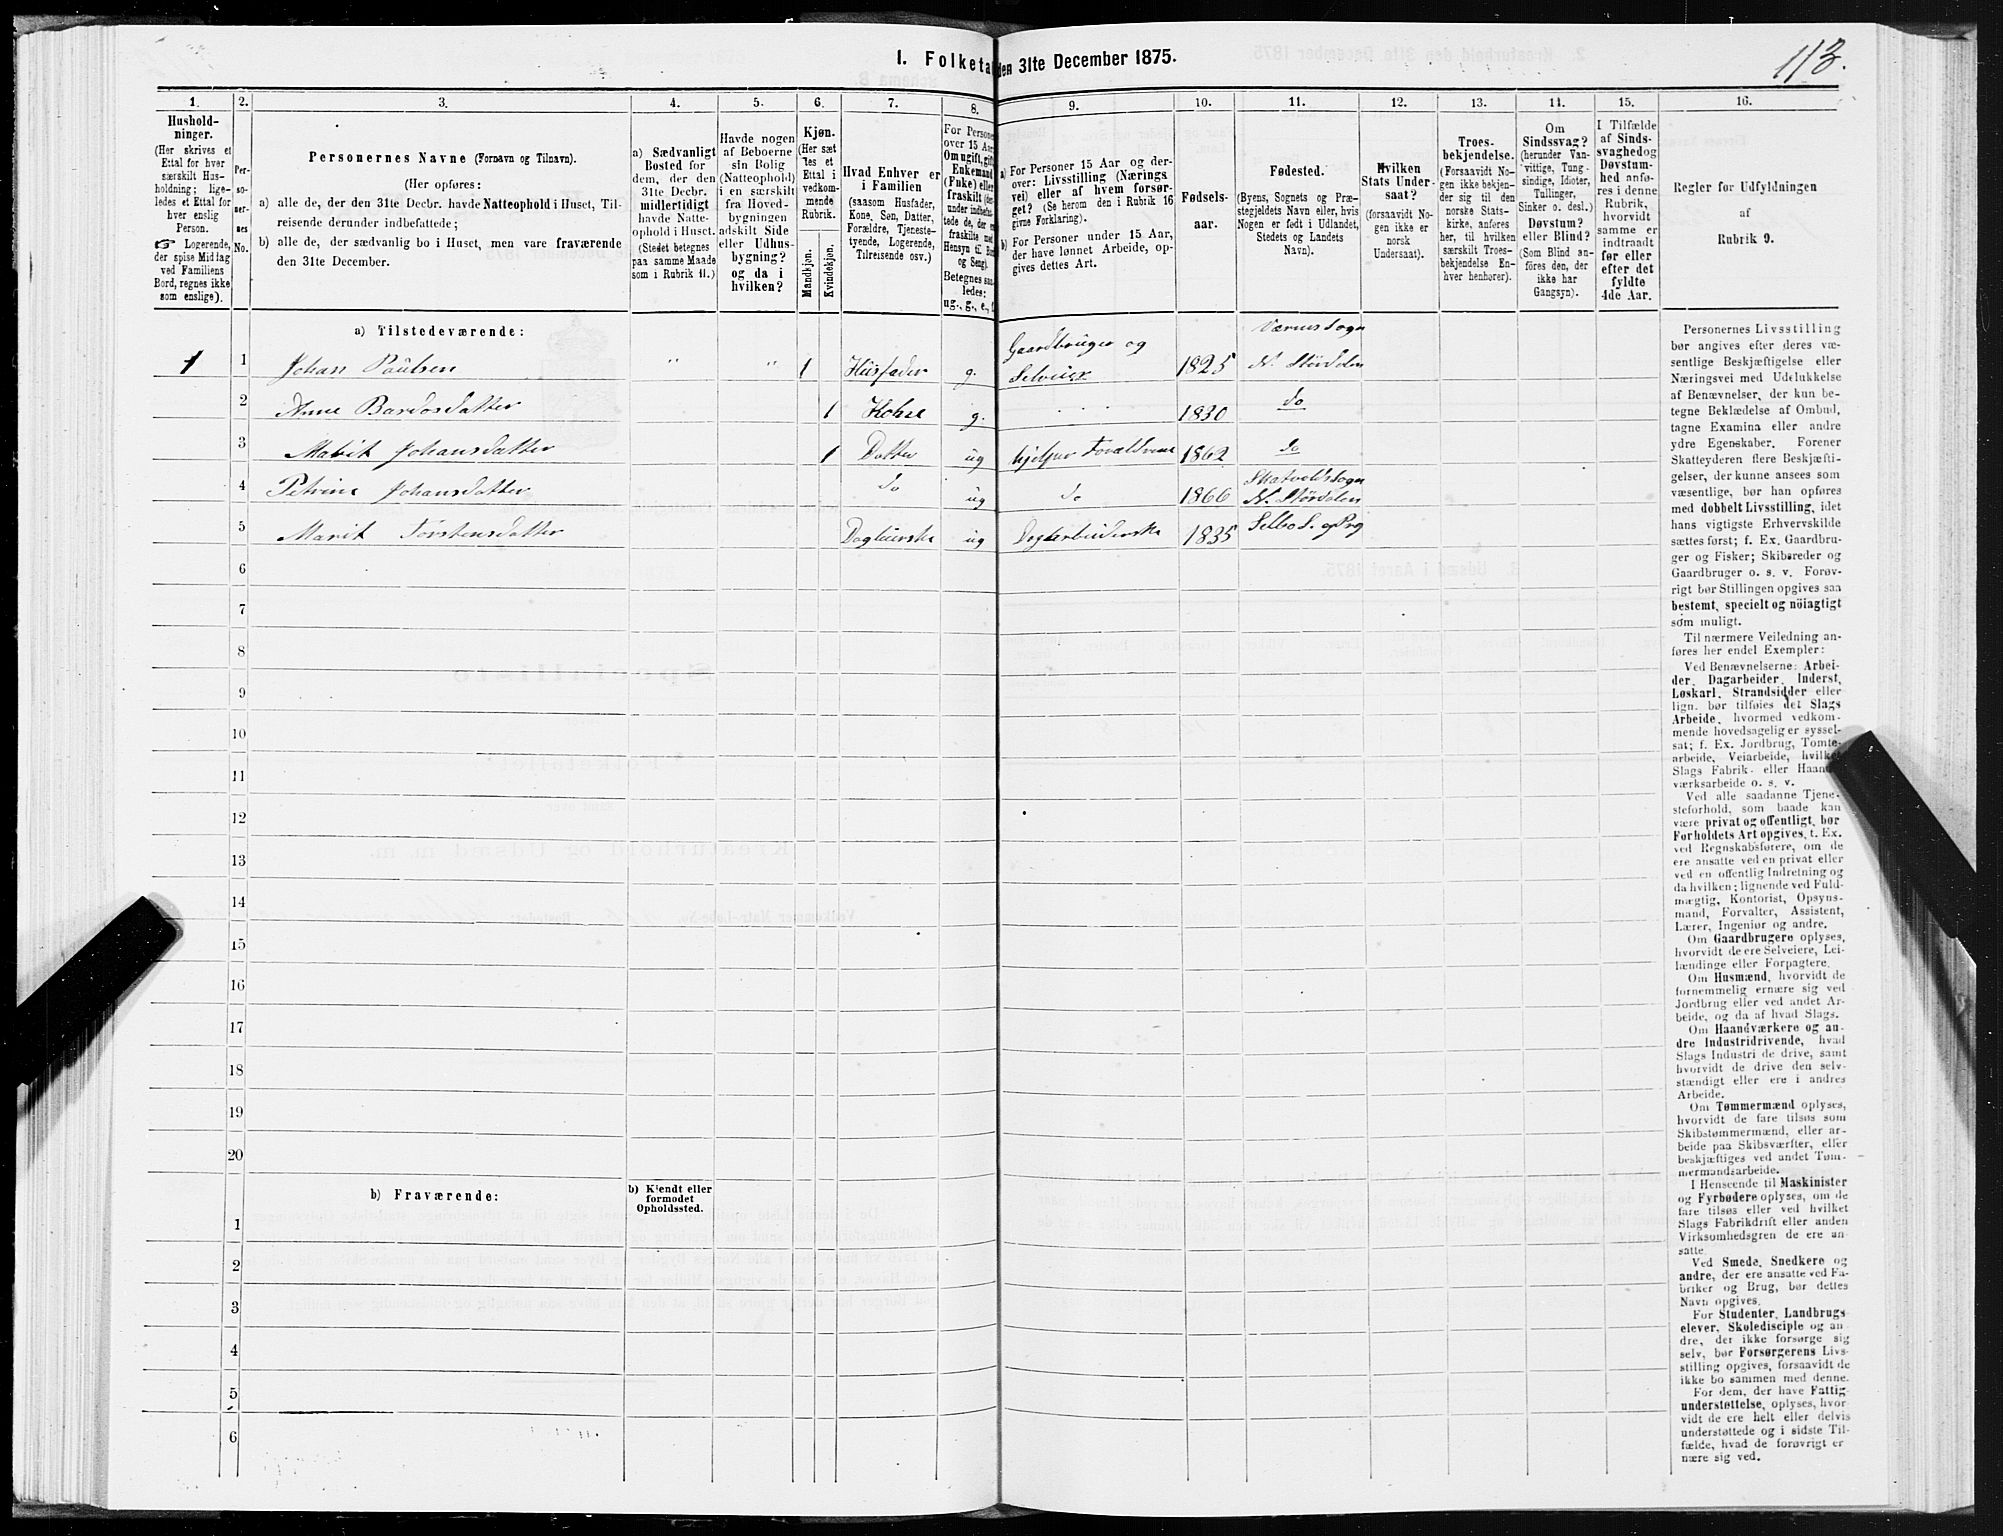 I. Folketal den 31te December 1875.
113.
1.
2.
3.
4.
5.
6.
7.
8.
9.
10.
11.
12.
13.
14.
15.
16.
Hushold-
ninger.
(Her skrives et
Ettal for hver
særskilt Hus-
holdning; lige-
ledes et Ettal for
hver enslig
Person.
☞ Logerende,
der spise Middag
ved Familiens
Bord, regnes ikke
som enslige).
Per-
so-
ner-
nes
No.
Personernes Navne (Fornavn og Tilnavn).
(Her opføres:
a) alle de, der den 31te Decbr. havde Natteophold i Huset, Til-
reisende derunder indbefattede;
b) alle de, der sædvanlig bo i Huset, men vare fraværende
den 31te December.
a) Sædvanligt
Bosted for
dem, der den
31te Decbr.
midlertidigt
havde Natte-
ophold i Huset.
(Stedet betegnes
paa samme Maade
som i Rubrik 11.)
Havde nogen
af Beboerne
sin Bolig
(Natteophold)
i en særskilt
fra Hoved-
bygningen
adskilt Side
eller Udhus-
bygning?
og da i
hvilken?
Kjøn.
(Her sæt-
tes et
Ettal i
vedkom-
mende
Rubrik.
Mandkjøn.
Kvindekjøn.
Hvad Enhver er
i Familien
(saasom Husfader,
Kone, Søn, Datter,
Forældre, Tjeneste-
tyende, Logerende,
Tilreisende osv.)
For Personer
over 15 Aar:
Om ugift, gift,
Enkemand
(Enke) eller
fraskilt
Betegnes saa-
ledes:
ug., g., e., f.
a) For Personer 15 Aar og der-
over: Livsstilling (Nærings-
vei) eller af hvem forsør-
get? (Se herom den i Rubrik 16
givne Forklaring).
b) For Personer under 15 Aar,
der have lønnet Arbeide, op-
gives dettes Art.
Fødsels-
aar.
Fødested.
(Byens, Sognets og Præ-
stegjeldets Navn eller, hvis
Nogen er født i Udlandet,
Stedets og Landets
Navn).
Hvilken
Stats Under-
saat?
(forsaavidt No-
gen ikke er
norsk
Undersaat).
Troes-
bekjendelse.
(Forsaavidt No-
gen ikke bekjen-
der sig til den
norske Stats-
kirke, anføres
her, til hvilken
særskilt Troes-
bekjendelse En-
hver henhører).
Om
Sindssvag?
(herunder Van-
vittige, Tung-
sindige, Idioter,
Tullinger,
Sinker o. desl.)
Døvstum?
eller Blind?
(Som Blind an-
føres den, der
ikke har
Gangsyn).
I Tilfælde
af Sinds-
svaghed og
Døvstum-
hed anfø-
res i denne
Rubrik,
hvorvidt
samme er
indtraadt
før eller
efter det
fyldte
4de Aar.
Regler for Udfyldningen
af
Rubrik 9.
a) Tilstedeværende:
1 1 Johan Paulsen " " 1 Husfader g. Gaardbruger og Selveier 1825 Værnes Sogn N. Størdalen
2 Anne Bardosdatter 1 Kone g. 1830 do
3 Marit Johansdatter 1 Datter ug hjelper Forældrene 1862 do
4 Petrine Johansdatter do ug do 1866 Skatvold Sogn N. Størdalen
5 Marit Torstensdatter ug Dagarbeiderske 1835 Selbo S. og Prg
6
7
8
9
10
11
12
13
14
15
16
17
18
19
20
b) Fraværende:
b) Kjendt eller
formodet
Opholdssted.
1
2
3
4
5
6
Personernes Livsstilling
bør angives efter deres væ-
sentlige Beskjæftigelse eller
Næringsvei med Udelukkelse
af Benævnelser, der kun be-
tegne Beklædelse af Ombud,
tagne Examina eller andre
ydre Egenskaber. Forener
Skatteyderen flere Beskjæfti-
gelser, der kunne ansees som
væsentlige, bør han opføres
med dobbelt Livsstilling, idet
hans vigtigste Erhvervskilde
sættes først; f. Ex. Gaardbru-
ger og Fisker; Skibsreder og
Gaardbruger o. s. v. Forøv-
rigt bør Stillingen opgives saa
bestemt, specielt og nöiagtigt
som muligt.
Til nærmere Veiledning an-
føres her endel Exempler:
Ved Benævnelserne: Arbei-
der, Dagarbeider, Inderst,
Løskarl, Strandsidder eller
lign. bør tilføies det Slags
Arbeide, hvormed vedkom-
mende hovedsagelig er syssel-
sat; f. Ex. Jordbrug, Tomte-
arbeide, Veiarbeide, hvilket
Slags Fabrik- eller Haand-
værksarbeide o. s. v.
Ved alle saadanne Tjene-
steforhold, som baade kan
være privat og offentligt, bør
Forholdets Art opgives, t. Ex.
ved Regnskabsførere, om de
ere ansatte ved en privat eller
ved en offentlig Indretning og
da hvilken; lignende ved Fuld-
mægtig, Kontorist, Opsyns-
mand, Forvalter, Assistent,
Lærer, Ingeniør og andre.
Om Gaardbrugere oplyses,
hvorvidt de ere Selveiere, Lei-
lændinge eller Forpagtere.
Om Husmænd, hvorvidt de
fornemmelig ernære sig ved
Jordbrug eller ved andet Ar-
beide, og da af hvad Slags.
Om Haandværkere og an-
dre Industridrivende, hvad
Slags Industri de drive, samt
hvorvidt de drive den selv-
stændigt eller ere i andres
Arbeide.
Om Tømmermænd oplyses,
hvorvidt de fare tilsøs som
Skibstømmermænd, eller ar-
beide paa Skibsværfter, eller
beskjæftiges ved andet Tøm-
mermandsarbeide.
I Henseende til Maskinister
og Fyrbødere oplyses, om de
fare tilsøs eller ved hvilket
Slags Fabrikdrift eller anden
Virksomhedsgren de ere an-
satte.
Ved Smede, Snedkere og
andre, der ere ansatte ved Fa-
briker og Brug, bør dettes
Navn opgives.
For Studenter, Landbrugs-
elever, Skoledisciple og an-
dre, der ikke forsørge sig
selv, bør Forsørgerens Livs-
stilling opgives, forsaavidt de
ikke bo sammen med denne.
For dem, der have Fattig-
understøttelse, oplyses, hvor-
vidt de ere helt eller delvis
understøttede og i sidste Til-
fælde, hvad de forøvrigt er-
nære sig ved.